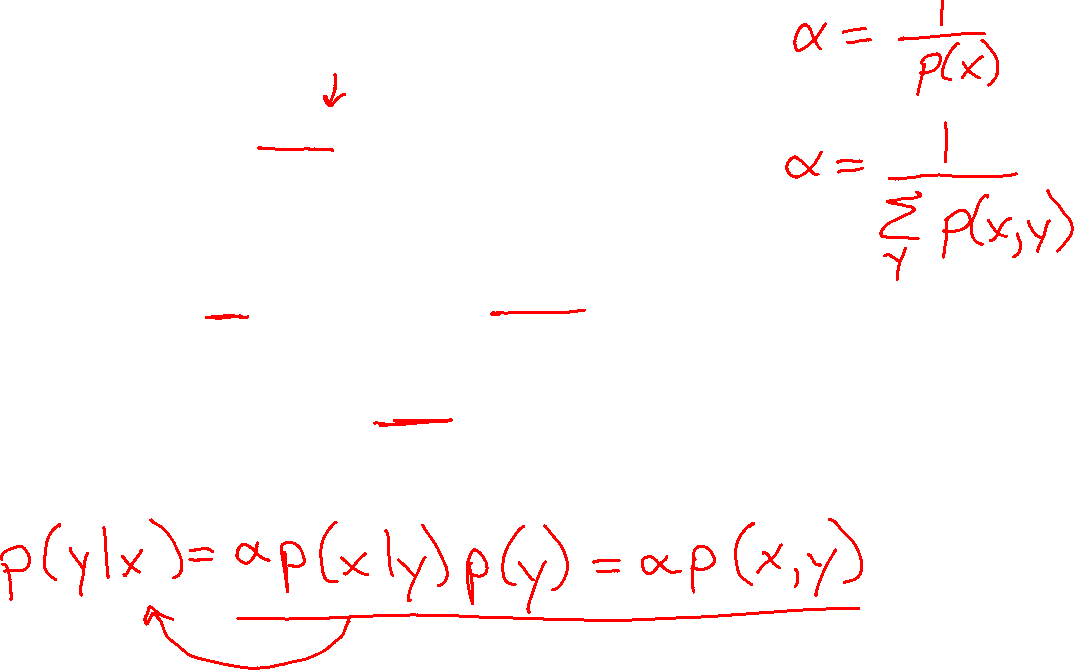 α = 1/p(x)
α = 1/∑_y p(x,y)
p(y|x) = αp(x|y)p(y) = αp(x,y)